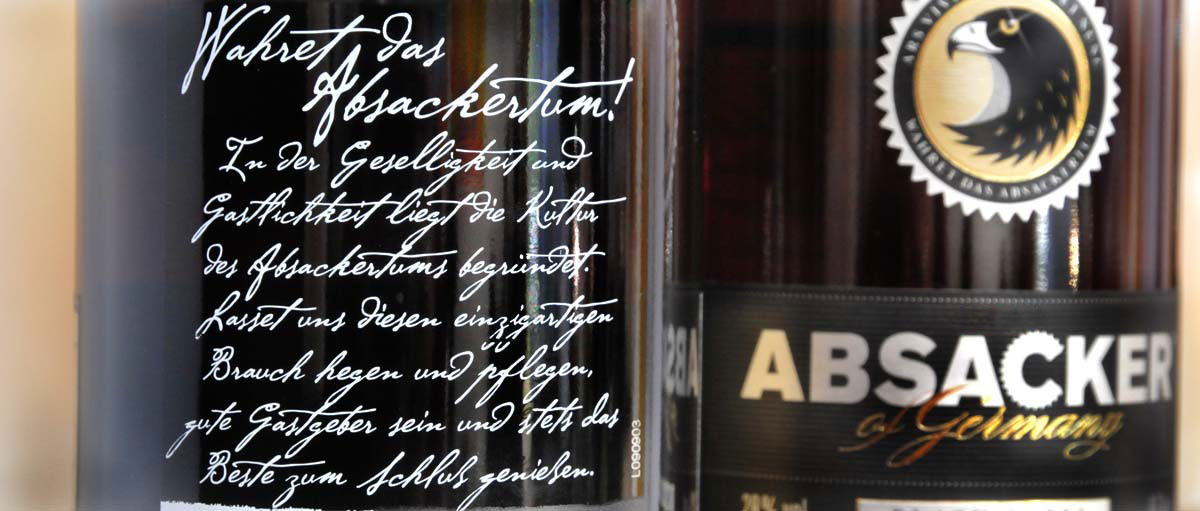 Wahret das
Absackertum!
In der Geselligkeit und
Gastlichkeit liegt die Kultur
des Absackertums begründet.
Lasset uns diesen einzigartigen
Brauch hegen und pflegen,
gute Gastgeber sein und stets das
Beste zum Schluß genießen.
L090903
ARS VIV
WAHRET DAS ABSACKERTUM
ABSACKER
of Germany